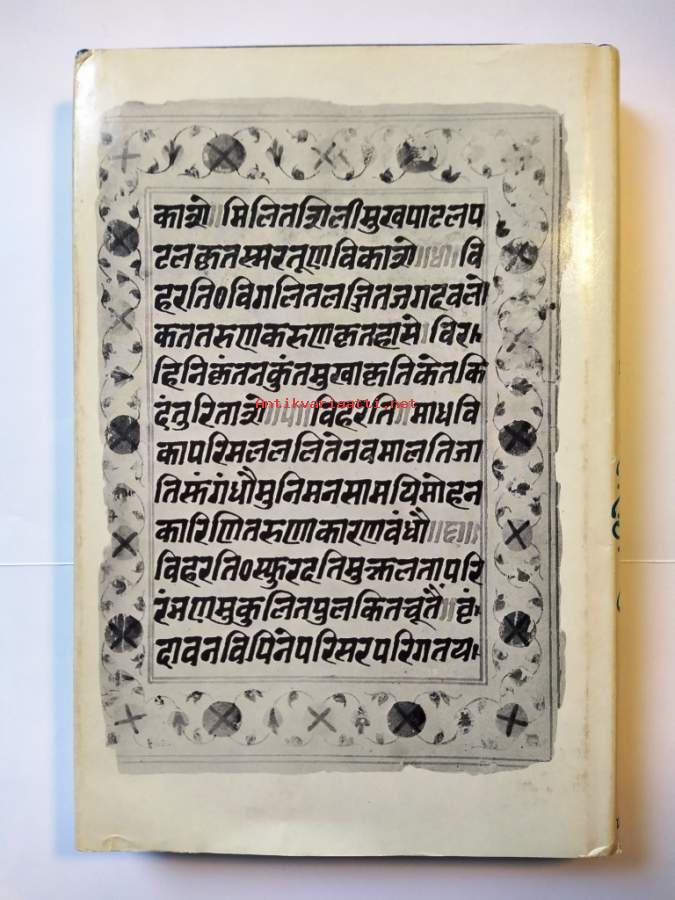 काशे॥मिलितशिलीमुखपाटलप
टलकृतस्मरतूणविकाशे॥४॥वि
हरति०विगलितलज्जितजगदवलो
कततरुणकरुणकृतहासे।विर
हिनिकृंतनकुंतमुखाकृतिकेतकि
दंतुरिताशे॥५॥विहरति॥माधवि
Antikvariaatti.net
कापरिमलललितेनवमालतिजा
तिसुंगंधौमुनिमनसामपिमोहन
कारिणितरुणकारणबंधौ॥६॥
विहरति०स्फुरदतिमुक्तलतापरि
रंभणमुकुलितपुलकितचूतैं॥वृं
दावनविपिनेपरिसरपरिगतय